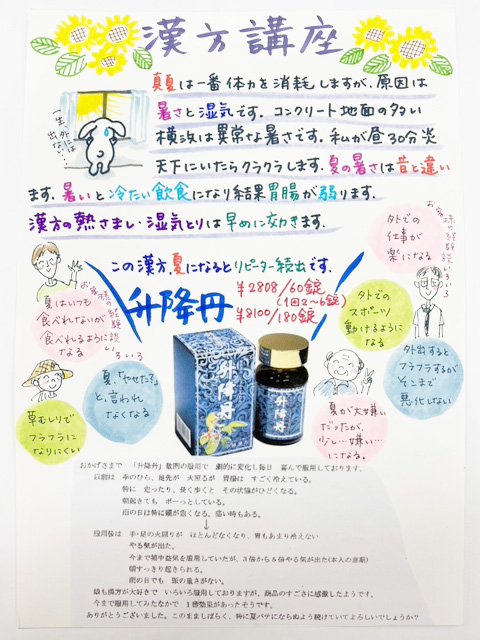 漢方講座
真夏は一番体力を消耗しますが、原因は
暑さと湿気です。コンクリート地面の多い
横浜は異常な暑さです。私が昼30分炎
天下にいたらクラクラします。夏の暑さは昔と違い
ます。暑いと冷たい飲食になり結果胃腸が弱ります。
漢方の熱さまし・湿気とりは早めに効きます。
一生、外には
出ない…
この漢方、夏になるとリピーター続出です。
升降丹
¥2808/60錠
(1回2～6錠)
¥8100/180錠
お客様の経験談いろいろ
夏はいつも
食べれないが
食べれるように
なる
夏、「やせた?」
と、言われ
なくなる
草むしりで
フラフラに
なりにくい
お客様の経験談いろいろ
外での
仕事が
楽になる
外での
スポーツ
動けるように
なる
外出すると
フラフラするが
そこまで
悪化しない
夏が大嫌い
だったが、
少し…嫌い…
になる。
升降丹
升降丹
おかげさまで 「升降丹」散剤の服用で 劇的に変化し毎日 喜んで服用しております。
以前は 手のひら、足先が 火照るが 胃腸は すごく冷えている。
特に 走ったり、長く歩くと その状態がひどくなる。
朝起きても ボーっとしている。
雨の日は特に頭が重くなる。痛い時もある。
↓
服用後は 手・足の火照りが ほとんどなくなり、胃もあまり冷えない
やる気が出た。
今まで補中益気を服用していたが、3倍から5倍やる気が出た(本人の言葉)
朝すっきり起きられる。
雨の日でも 頭の重さがない。
娘も漢方が大好きで いろいろ服用しておりますが、商品のすごさに感激したようです。
今まで服用してみたなかで 1番効果があったそうです。
ありがとうございました。このまましばらく、特に夏バテにならぬよう続けていてよろしいでしょうか?